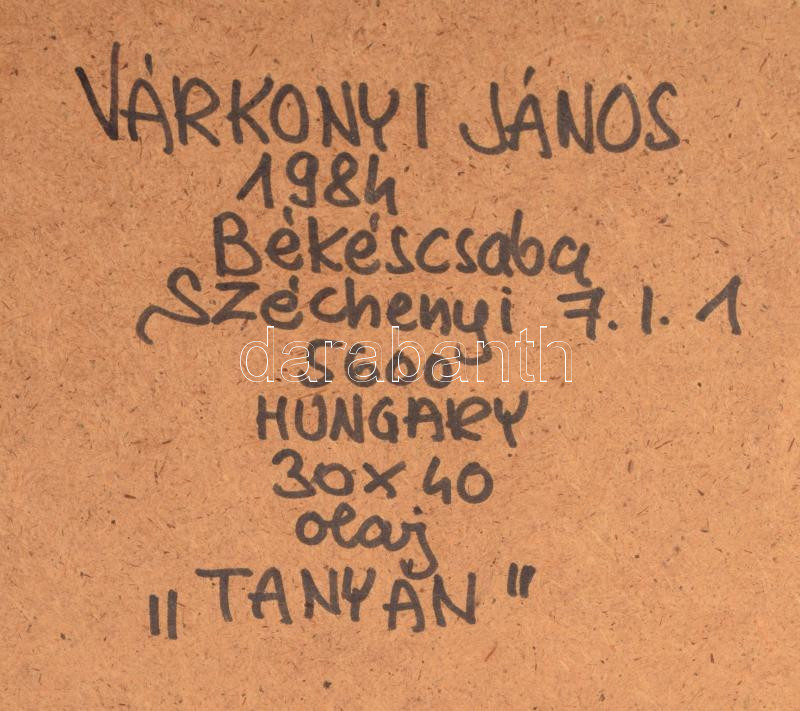 VÁRKONYI JÁNOS
1984
Békéscsaba
Széchenyi 7. I. 1
darabanth
5600
HUNGARY
30x40
olaj
„TANYÁN"